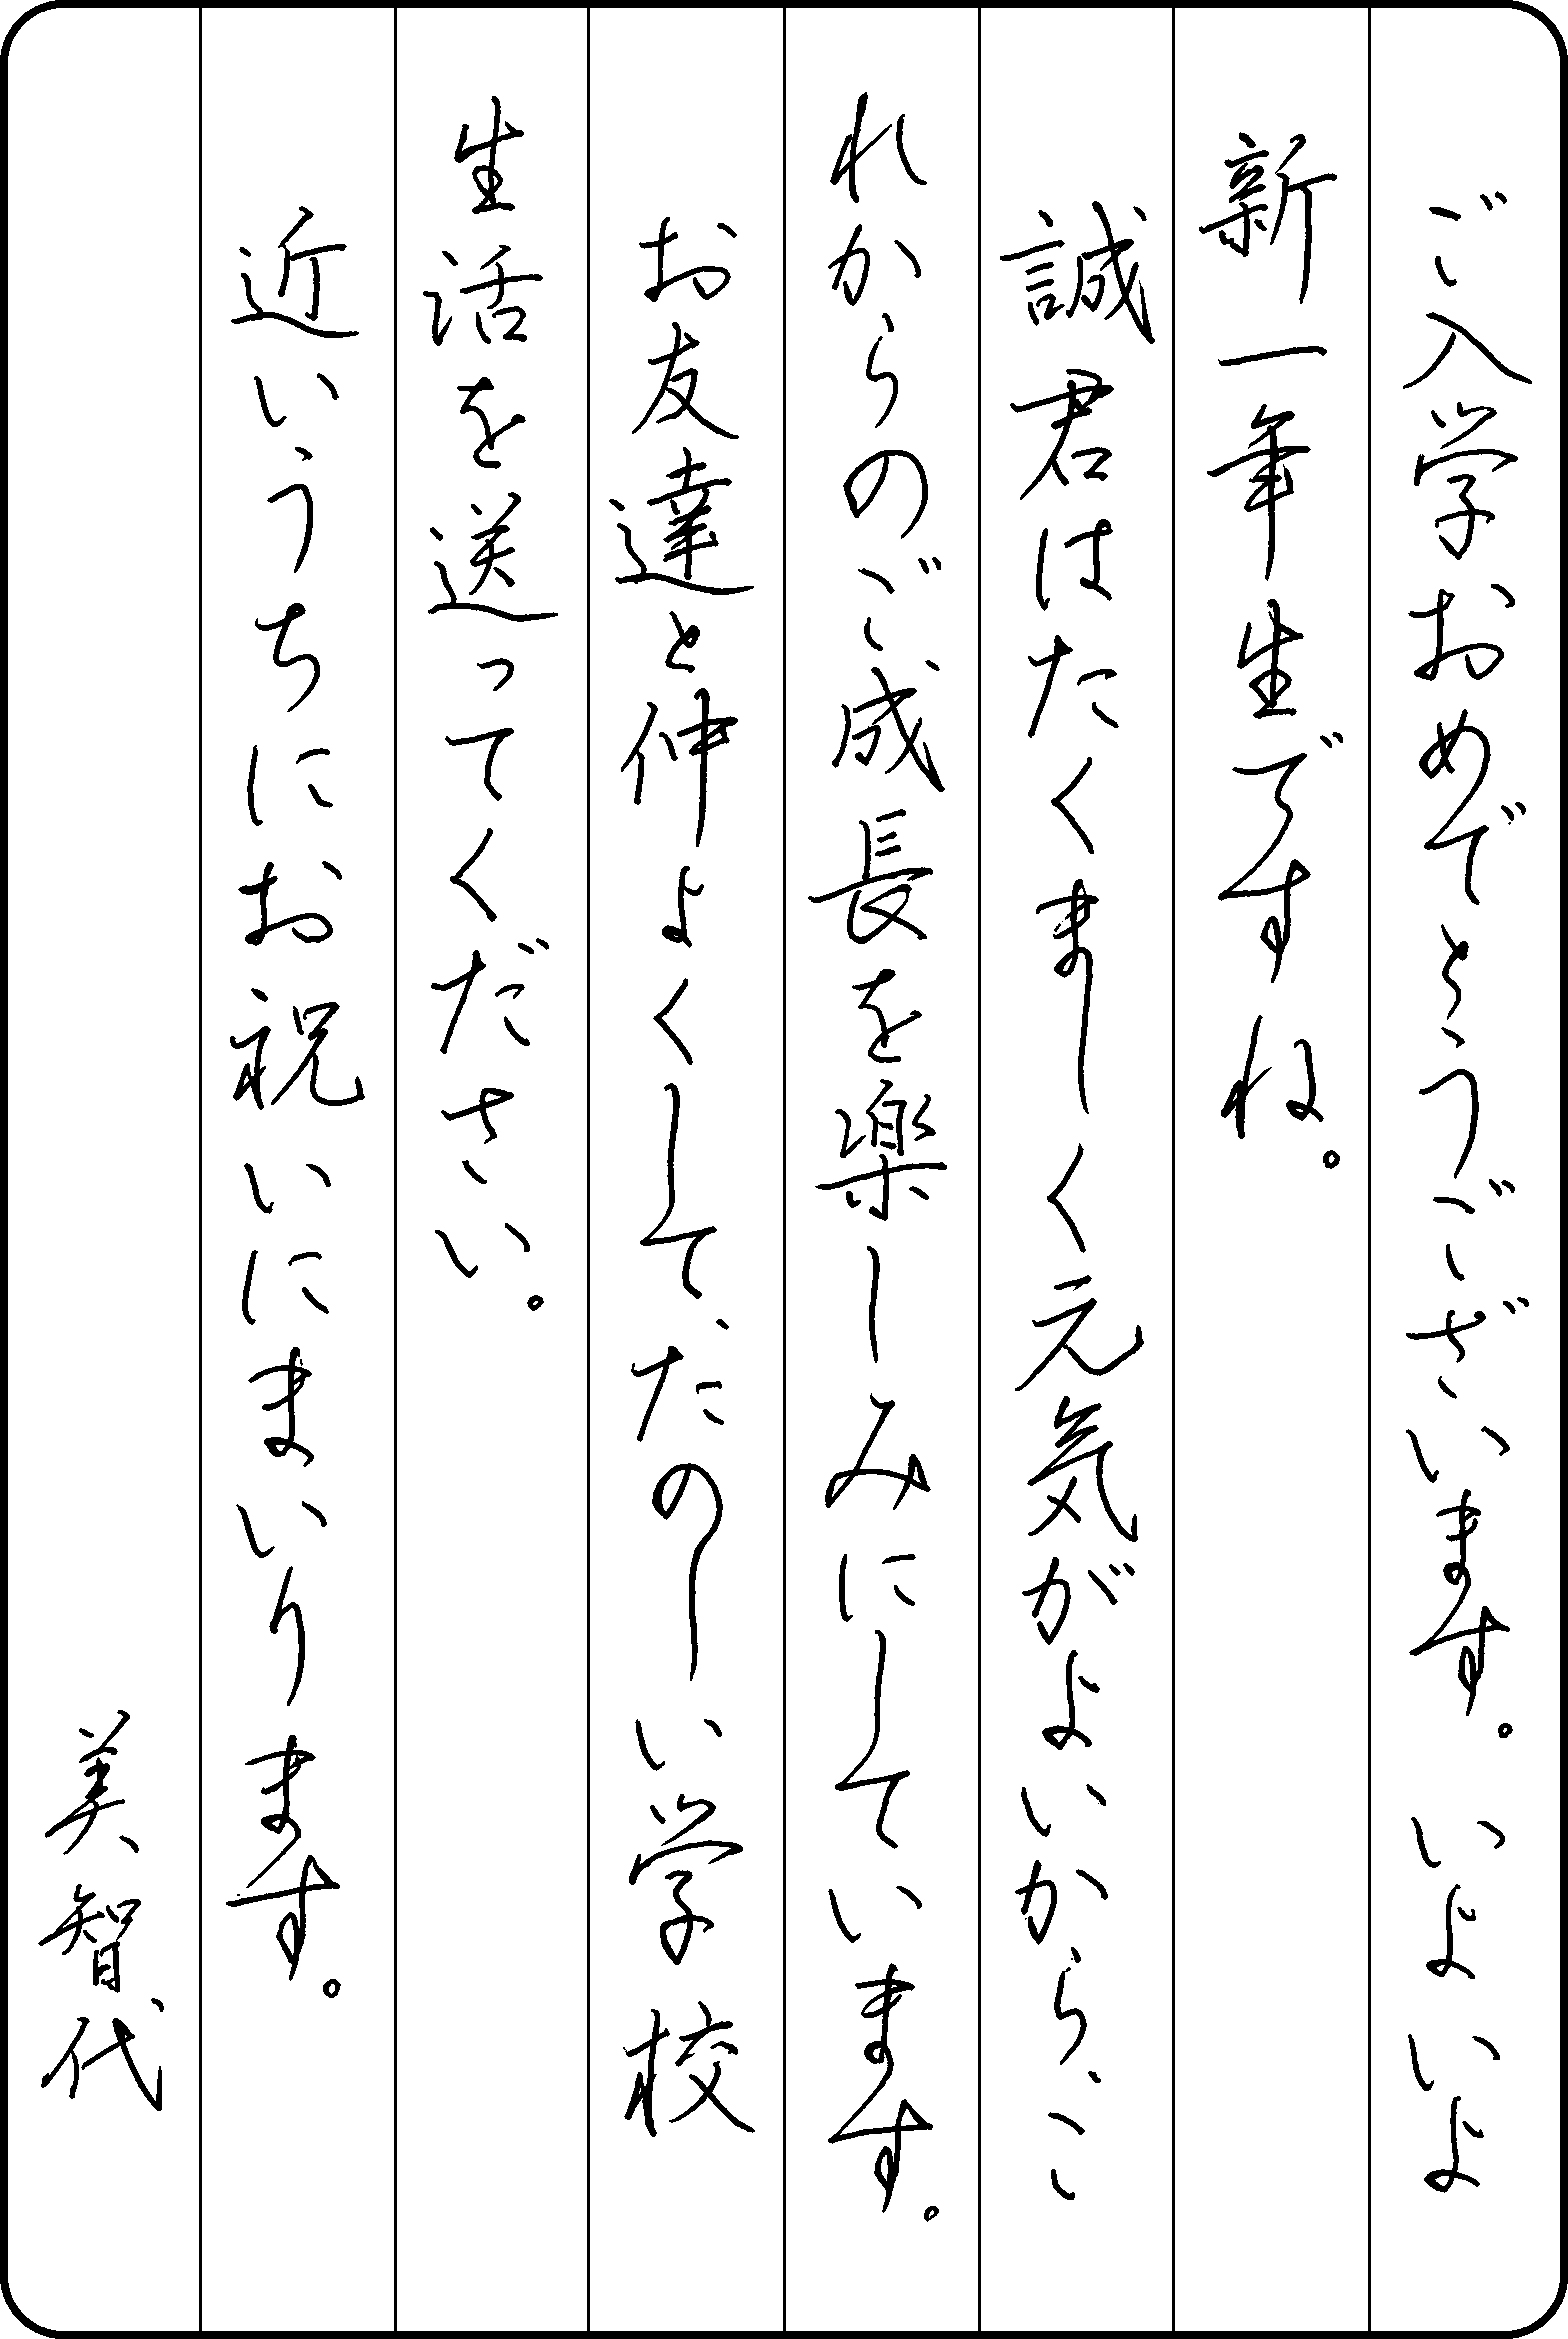 ご入学おめでとうございます。いよいよ
新一年生ですね。
誠君はたくましく元気がよいから、こ
れからのご成長を楽しみにしています。
お友達と仲よくして、たのしい学校
生活を送ってください。
近いうちにお祝いにまいります。
美智代